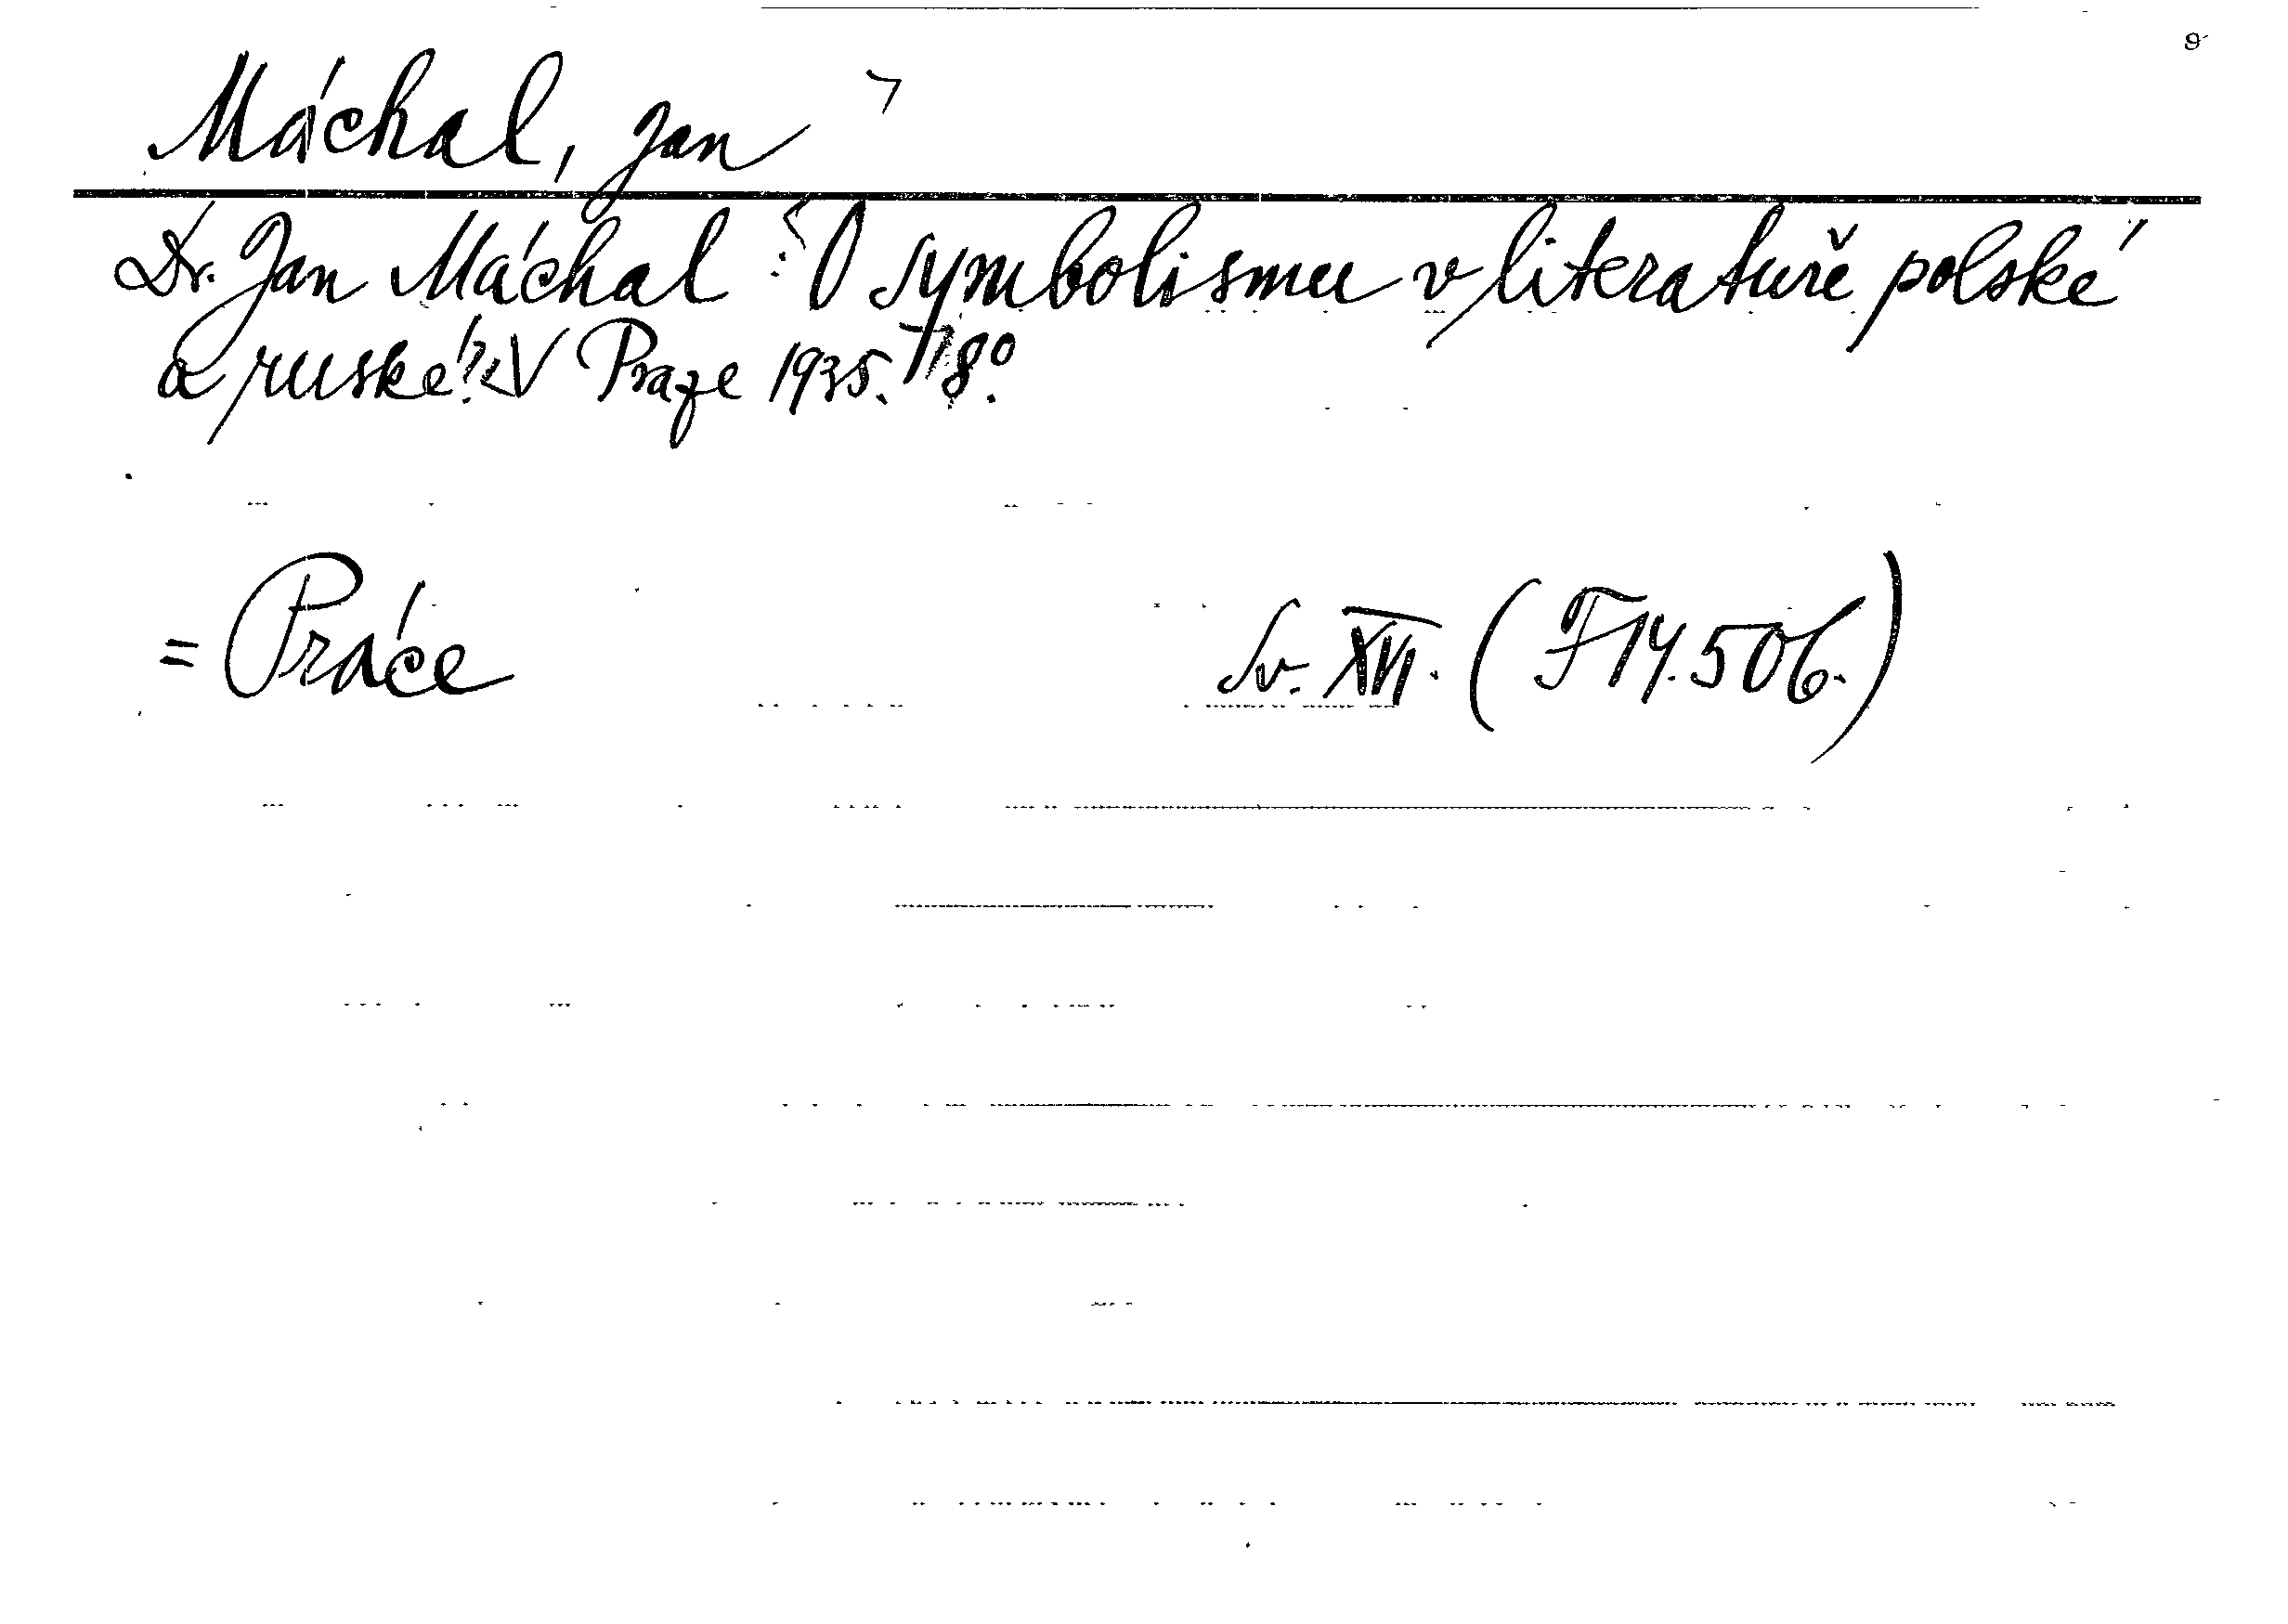 Máchal, Jan
Dr. Jan Máchal: O symbolismu v literatuře polské
a ruské. V Praze 1935. 8°.
= Práce Sv. XVI. (F 14.506.)